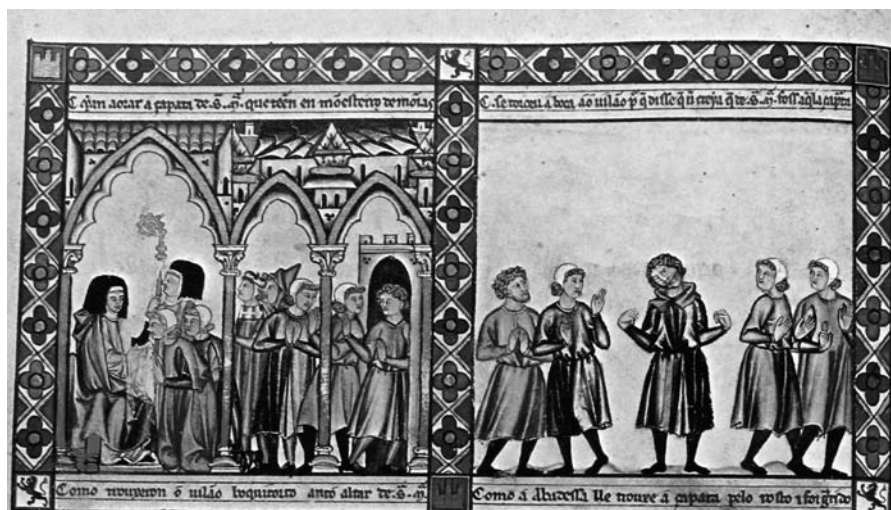 aorar a çapata de .S̃. M̃. que teẽn en mõesteyro de mõias
C. se torceu a boca ao uilão p̃ q̃ disse q̃ nõ creya q̃ de .S̃. M̃. foss aq̃la çapata
Como trouxeron o uilão boquitorto ant o altar de .S̃. M̃.
Como a Abadessa lle trouxe a çapata pelo rosto ⁊ foi